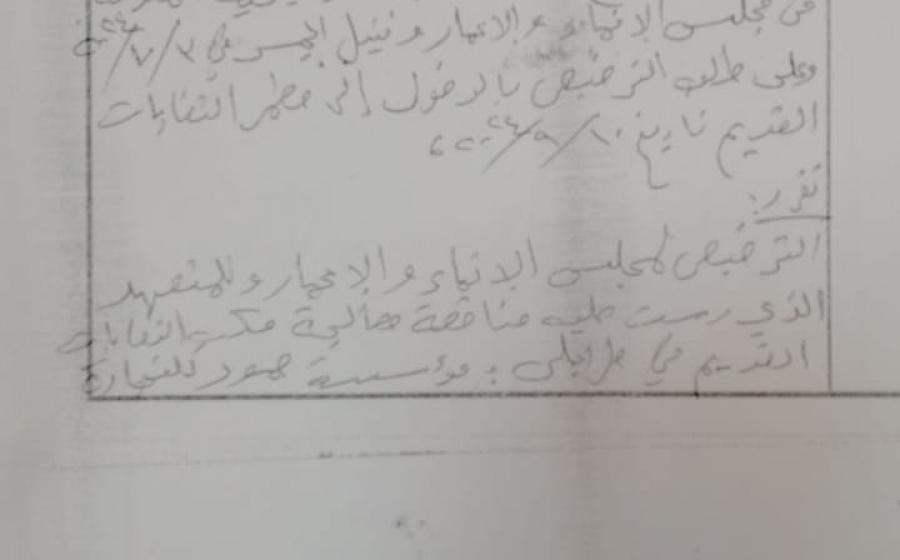 في مجلس الإنماء والإعمار ونبيل الجسر في ٣/٧/٢٠٢٤
وعلى طلب الترخيص بالدخول إلى مطمر النفايات
القديم تاريخ ١٠/٩/٢٠٢٤،
تقرر:
الترخيص لمجلس الإنماء والإعمار وللمتعهد
الذي رست عليه مناقصة معالجة مكب النفايات
القديم في طرابلس: مؤسسة حمود للتجارة